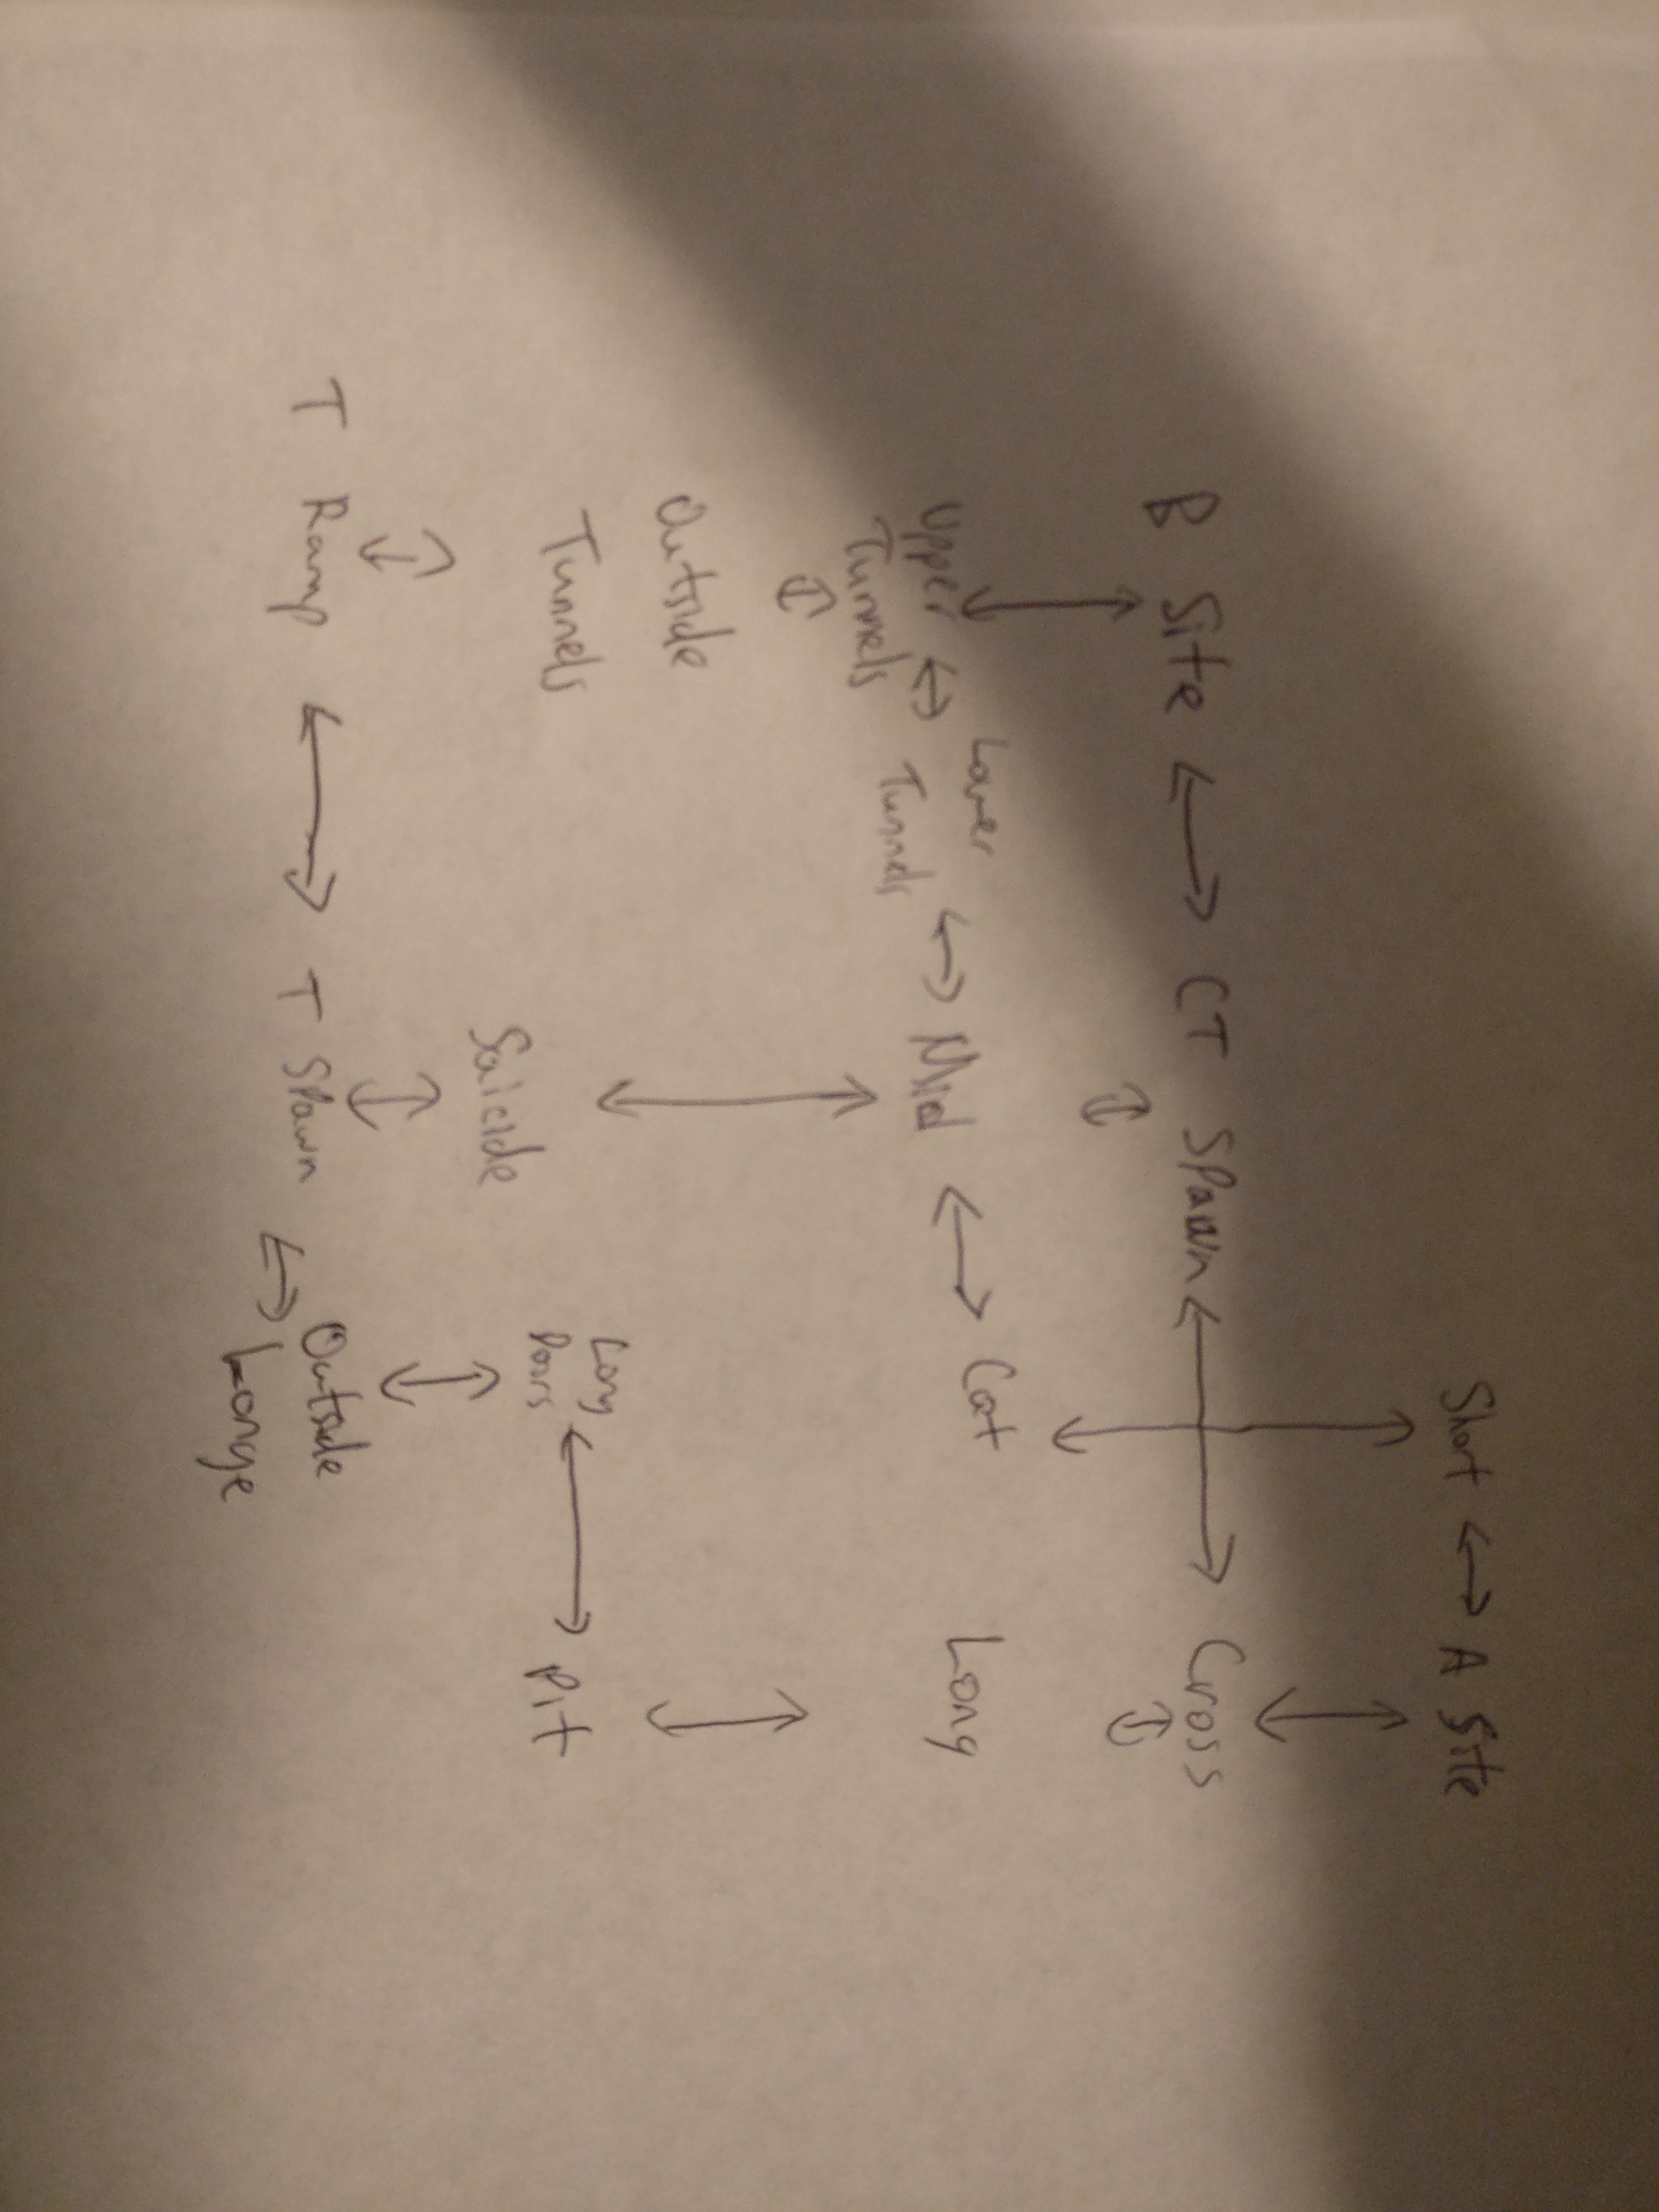 Short ↔ A Site
B Site ↔ CT Spawn ↔ Cross
Upper
Tunnels
Lower
Tunnels
Mid
Cat
Long
Outside
Tunnels
Long
Doors
Pit
Suicide
T Ramp ↔ T Spawn
Outside
Longe